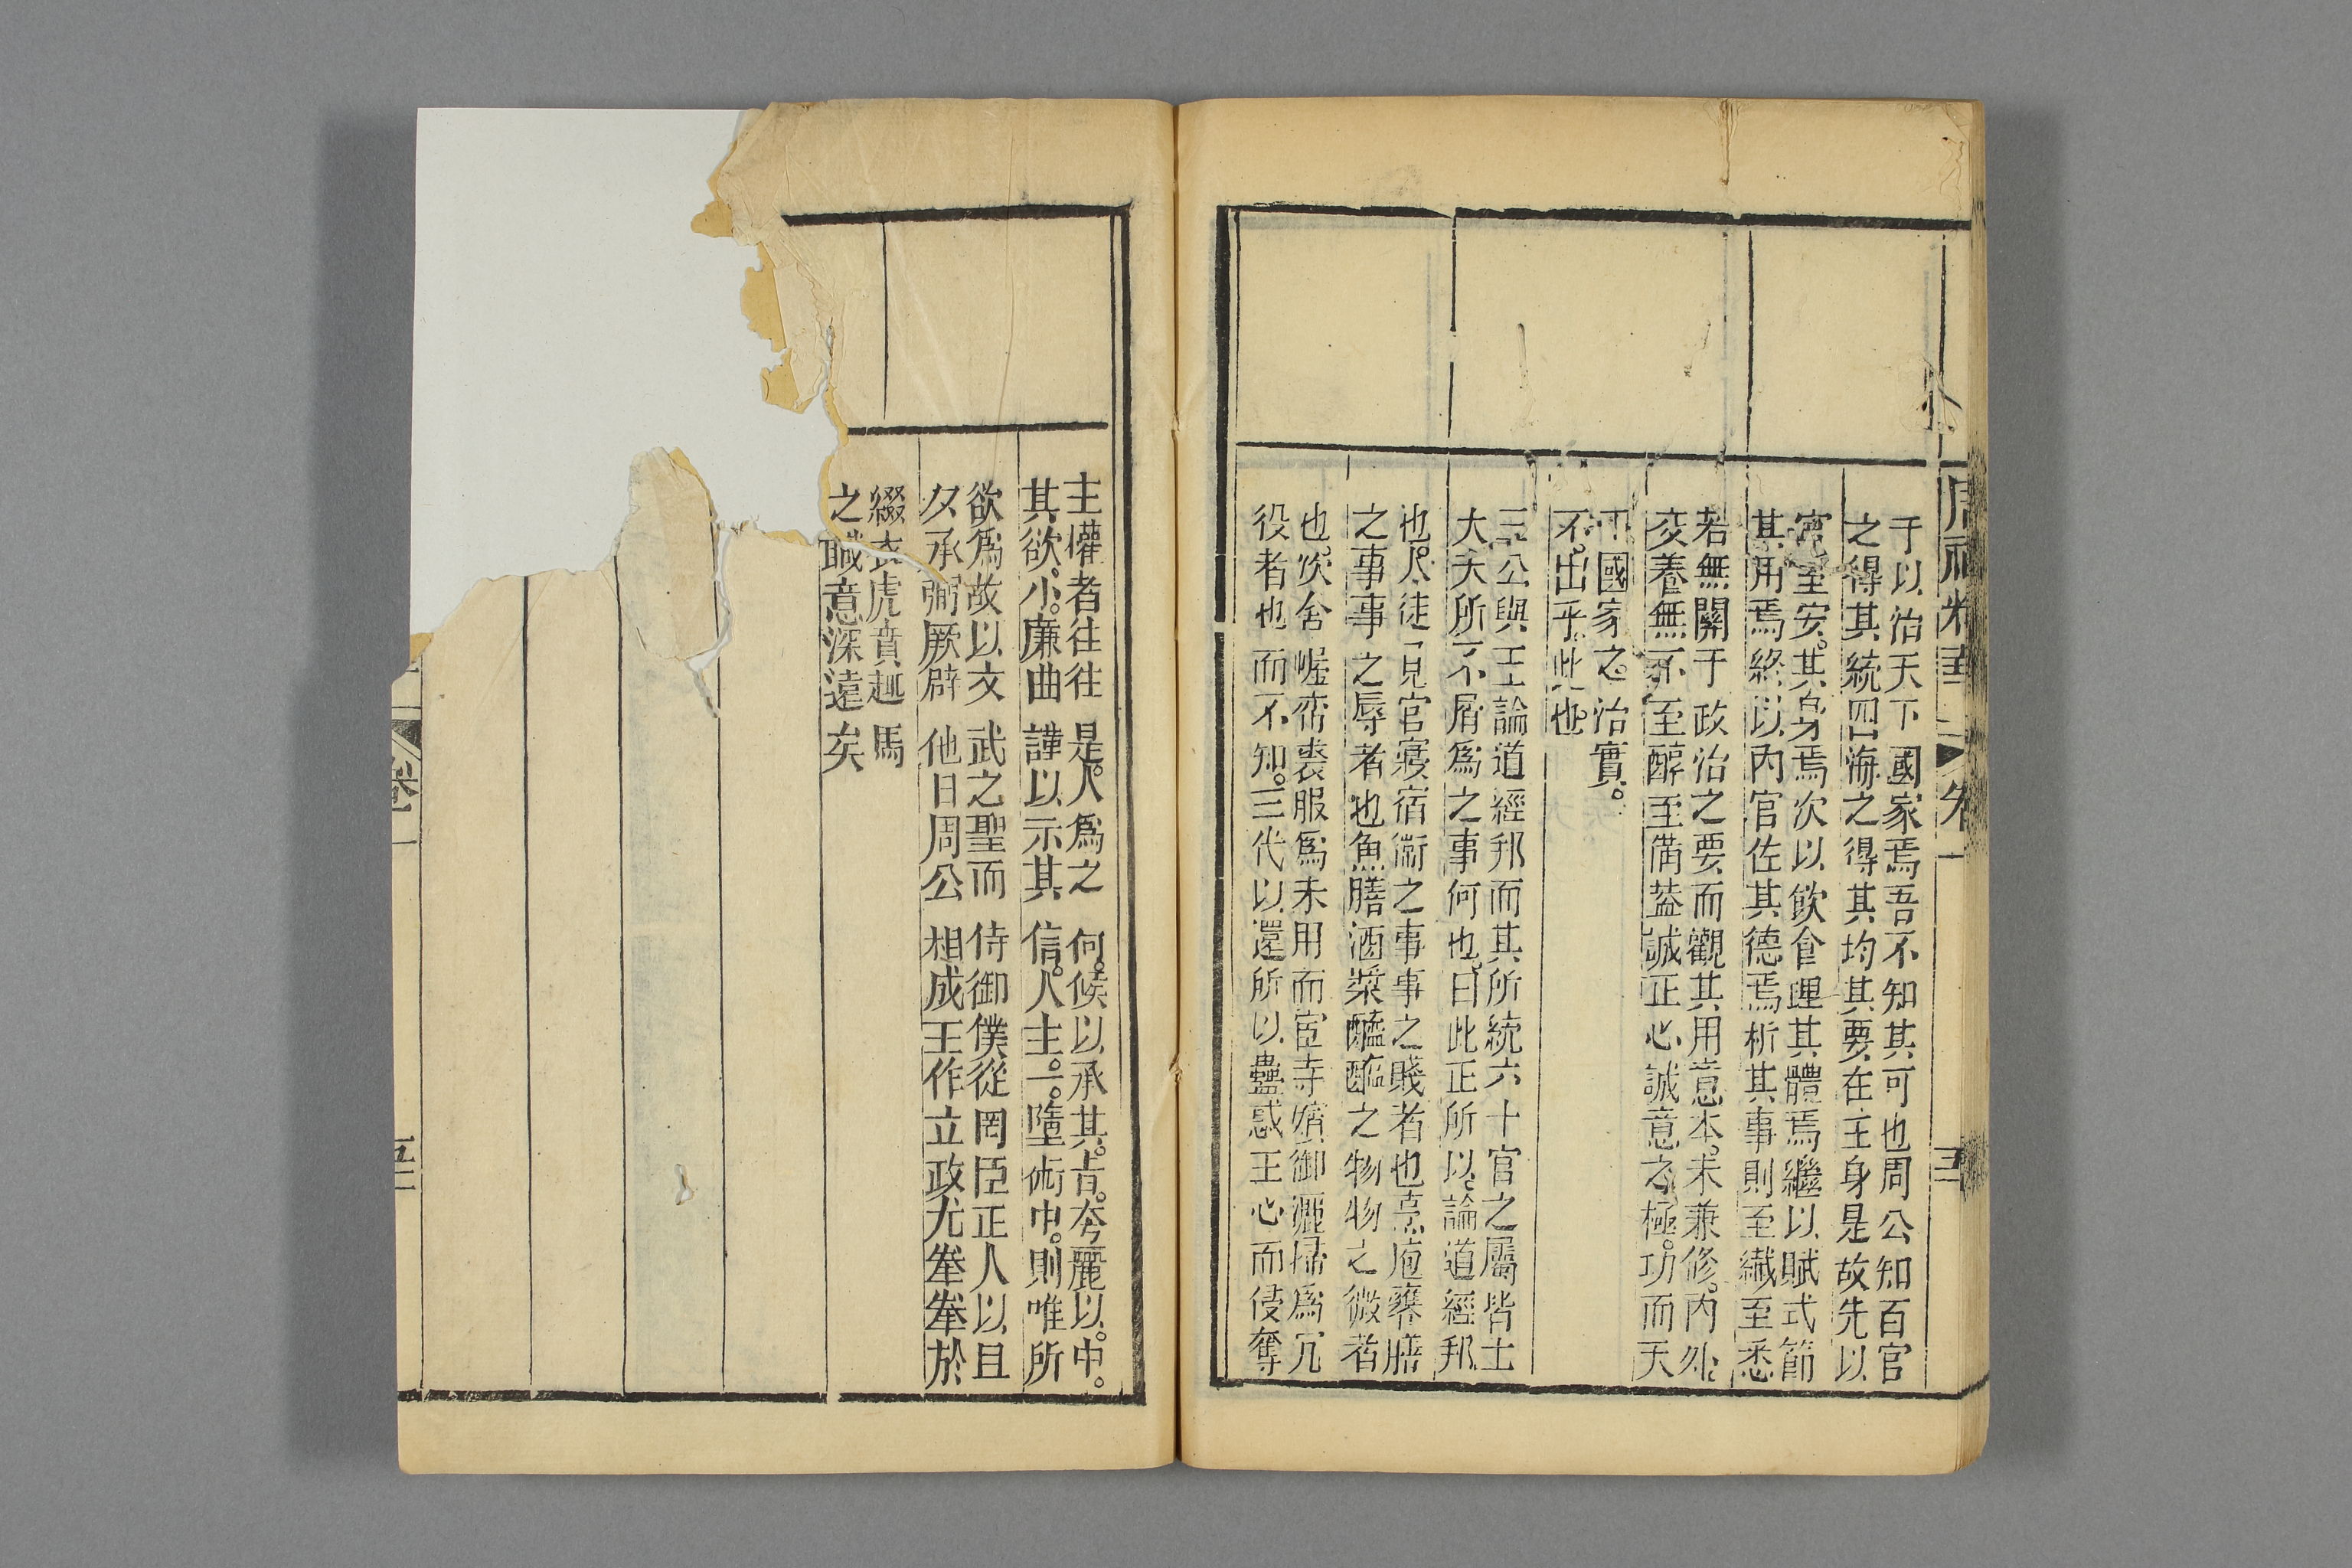 于以治天下國家焉吾不知其可也周公知百官
之得其統四海之得其均其要在主身是故先以
宮室安其身焉次以飲食理其體焉繼以賦式節
其用焉終以內官佐其德焉析其事則至纎至悉
若無關于政治之要而觀其用意本末兼修內外
交養無不至醇至備葢誠正心誠意之極功而天
下國家之治實
不出乎此也
三公與王論道經邦而其所統六十官之屬皆士
大夫所不屑爲之事何也曰此正所以論道經邦
也凡徒見官寢宿衛之事事之賤者也烹庖饔膳
之事事之辱者也魚膳酒漿醯醢之物物之微者
也次舍幄帟裘服爲末用而宦寺嬪御灑掃爲冗
役者也而不知三代以還所以蠱惑王心而侵奪
主權者往往是人爲之何候以承其旨夸麗以中
其欲小廉曲謹以示其信人主一墮術中則唯所
欲爲故以文武之聖而侍御僕從罔臣正人以旦
夕承弼厥辟他日周公相成王作立政尤拳拳於
綴衣虎賁趣馬
之職意深遠矣
卷一